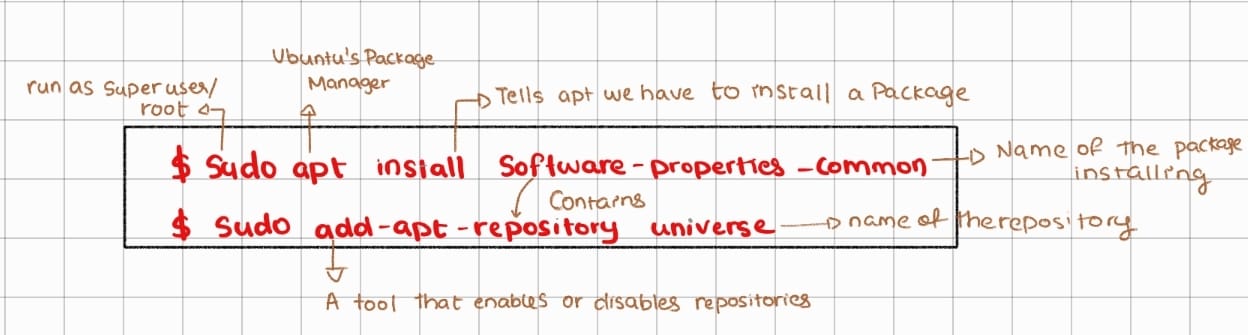 Ubuntu's Package
Manager
run as Superuser/
root
Tells apt we have to install a Package
$ Sudo apt install Software-properties-common
Name of the package
installing
Contains
$ Sudo add-apt-repository universe
name of the repository
A tool that enables or disables repositories